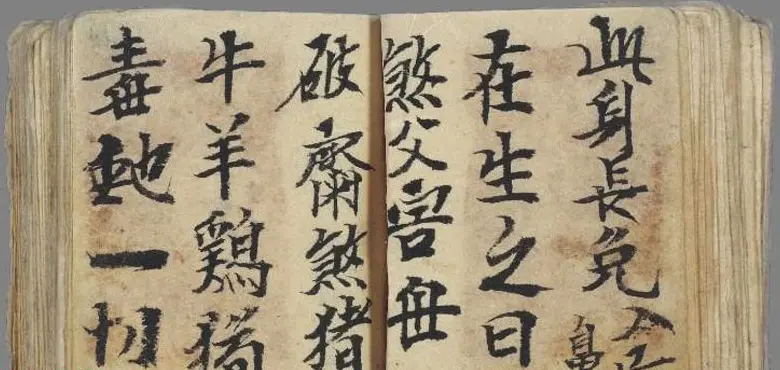 此身長免
在生之日
煞父害母
破齋煞猪
牛羊鷄
毒虵一切